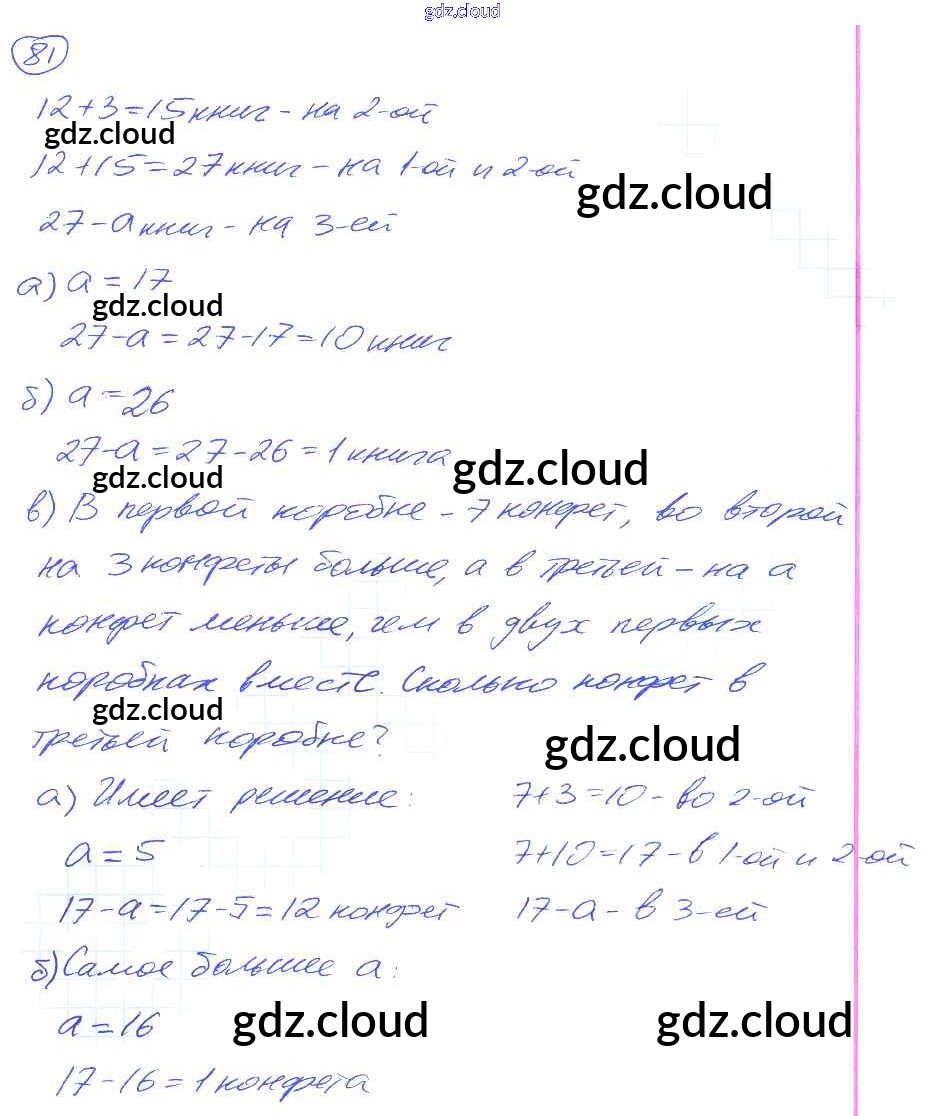 gdz.cloud
81
12+3=15 книг - на 2-ой
gdz.cloud
12+15=27 книг - на 1-ой и 2-ой
gdz.cloud
27-а книг - на 3-ей
а) а = 17
gdz.cloud
27-а = 27-17=10 книг
б) а = 26
27-а = 27-26 = 1 книга
gdz.cloud gdz.cloud
в) В первой коробке - 7 конфет, во второй
на 3 конфеты больше, а в третьей - на а
конфет меньше, чем в двух первых
коробках вместе. Сколько конфет в
gdz.cloud
третьей коробке?
gdz.cloud
а) Имеет решение: 7+3=10 - во 2-ой
а = 5 7+10=17 - в 1-ой и 2-ой
17-а=17-5=12 конфет 17-а - в 3-ей
б) Самое большее а:
а = 16 gdz.cloud gdz.cloud
17-16=1 конфета